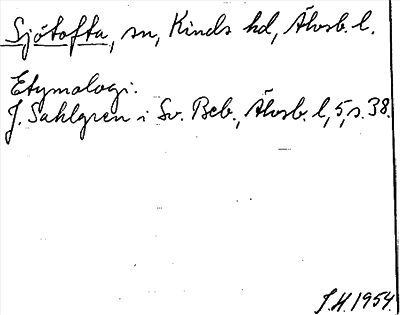 Sjötofta, sn, Kinds hd, Älvsb. l.
Etymologi.
J. Sahlgren i Sv. Beb., Älvsb. l, 5, s. 38.
J.H. 1954.